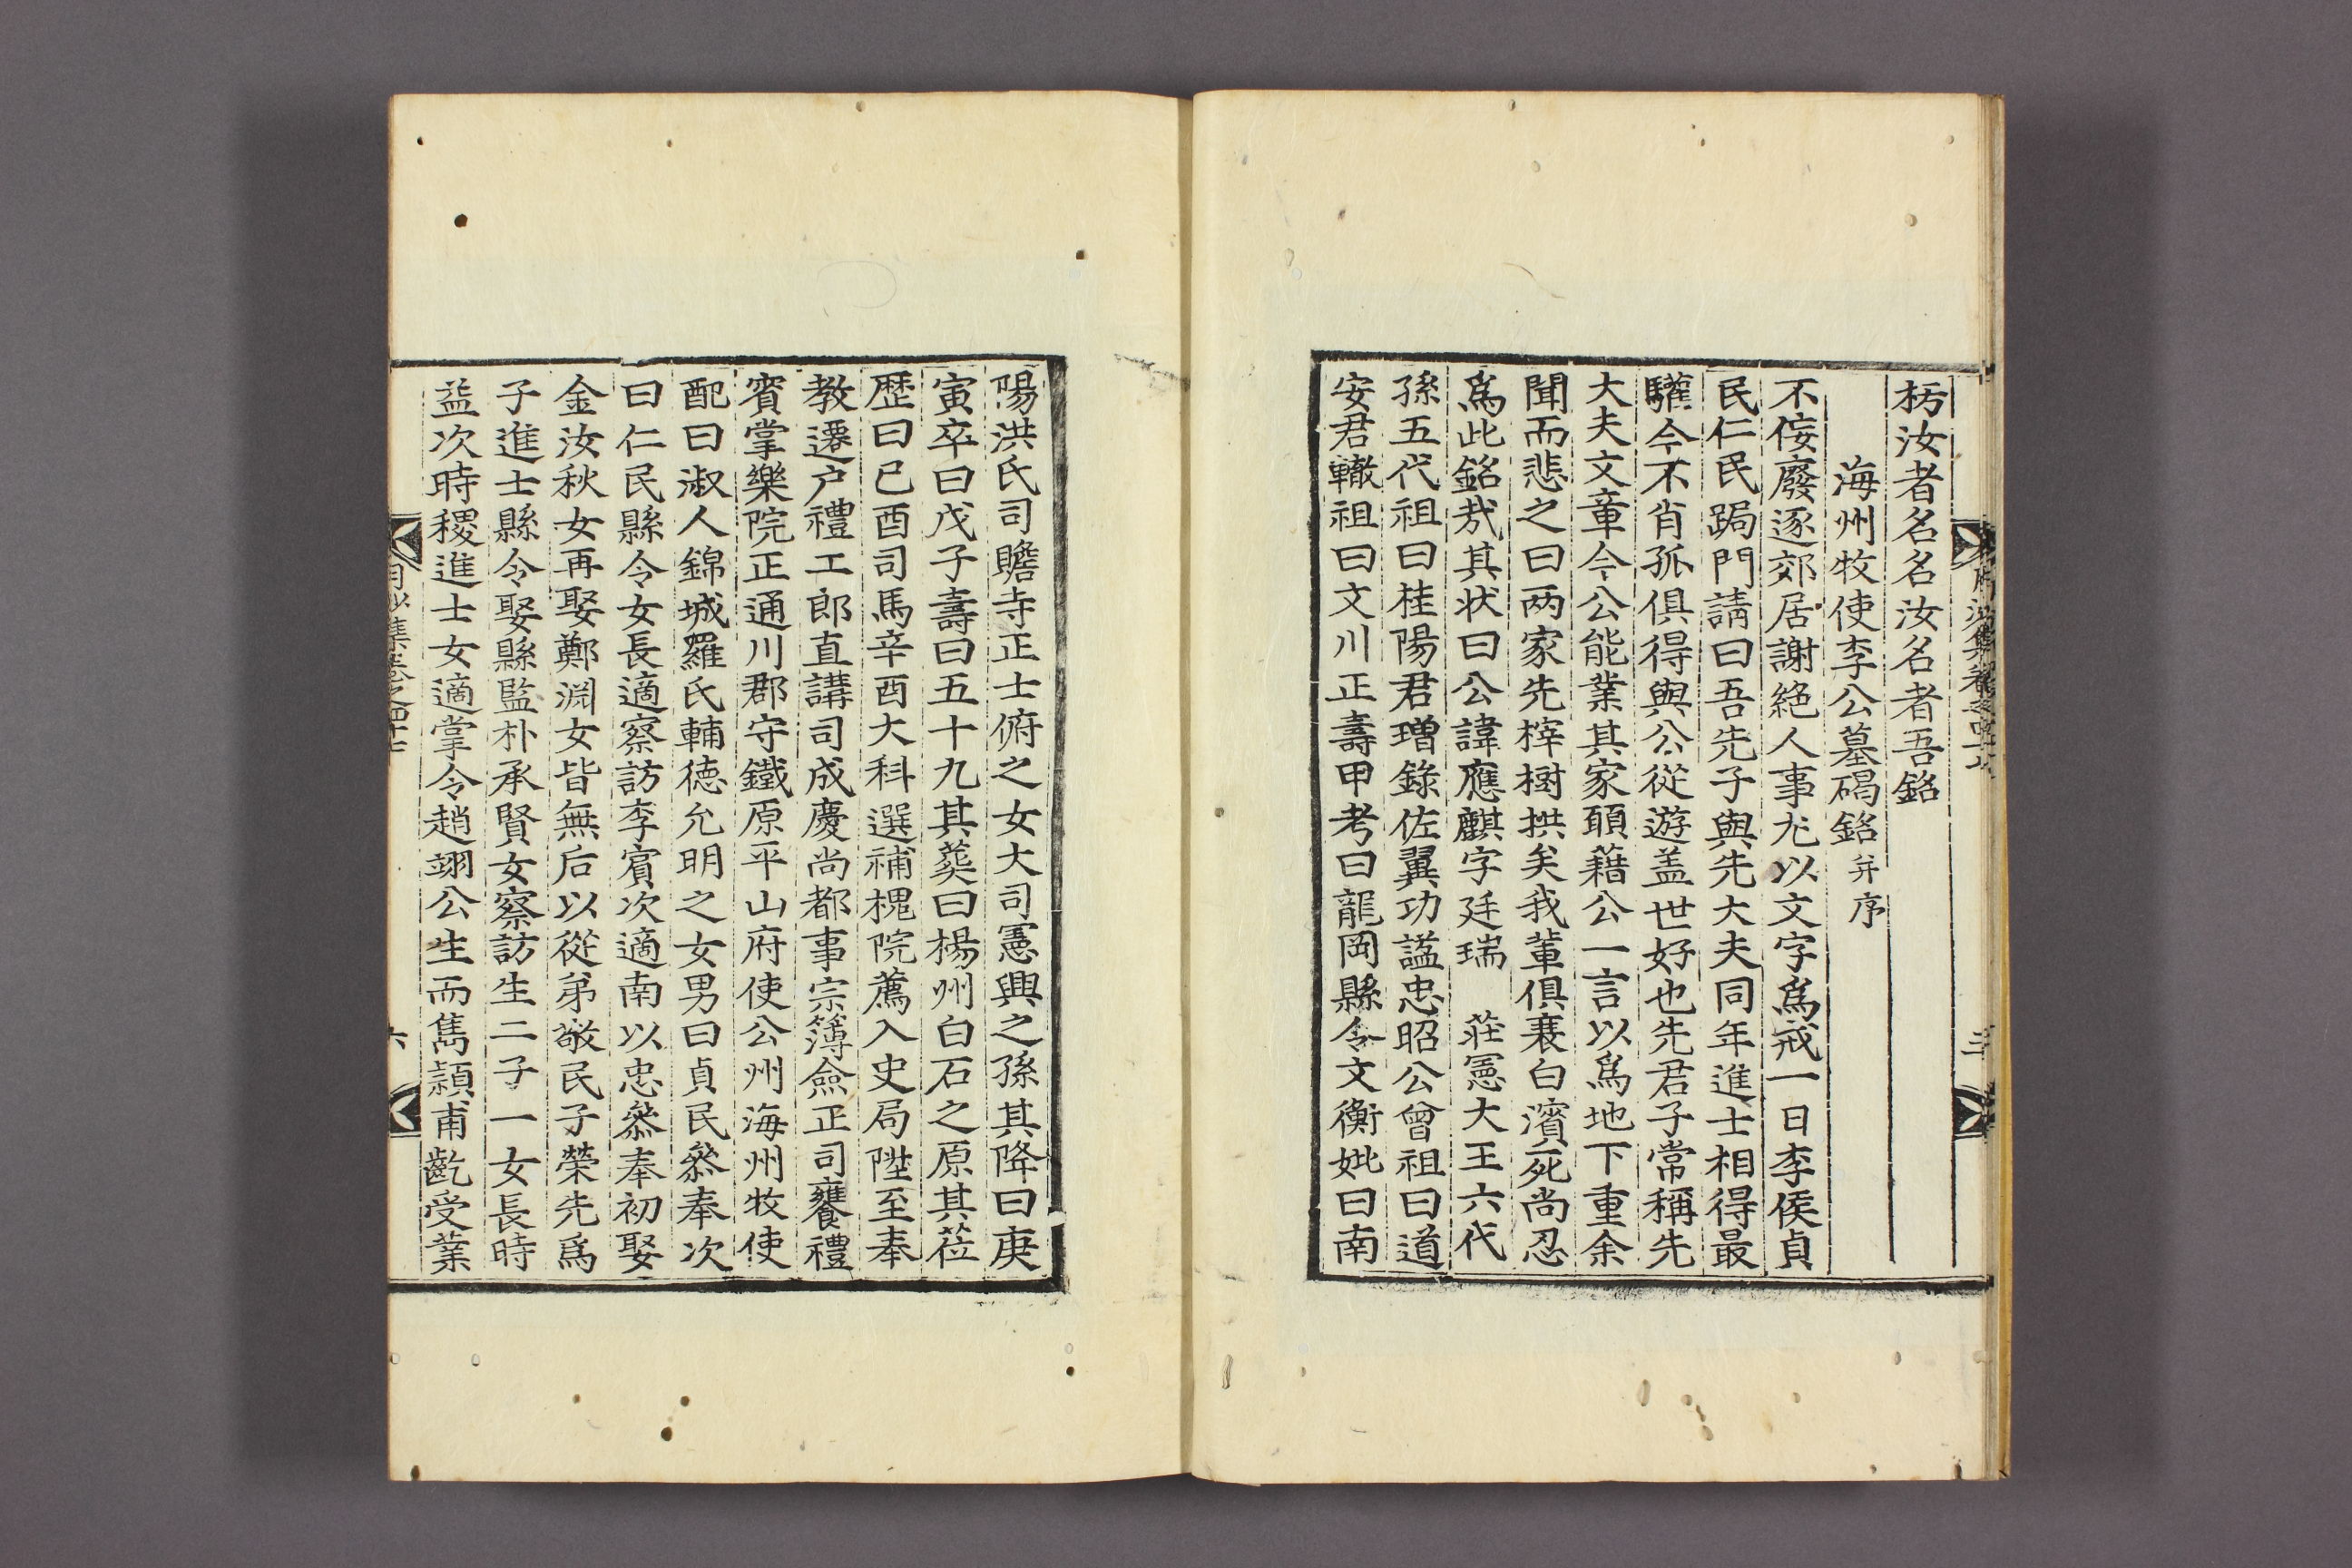 枋汝者名名汝名者吾銘
海州牧使李公墓碣銘并序
不侫廢逐郊居謝絶人事尤以文字爲戒一日李侯貞
民仁民跼門請曰吾先子與先大夫同年進士相得最
驩今不肖孤俱得與公從遊盖世好也先君子常稱先
大夫文章今公能業其家頤藉公一言以爲地下重余
聞而悲之曰两家先梓樹拱矣我輩俱衰白濱死尚忍
爲此銘㦲其状曰公諱應麒字廷瑞 莊憲大王六代
孫五代祖曰桂陽君璔錄佐翼功謚忠昭公曾祖曰道
安君轍祖曰文川正壽甲考曰龍岡縣令文衡妣曰南
陽洪氏司贍寺正士俯之女大司憲興之孫其降曰庚
寅卒曰戊子壽曰五十九其葬曰楊州白石之原其莅
歴曰已酉司馬辛酉大科選補槐院薦入史局陞至奉
教遷户禮工郎直講司成慶尚都事宗簿僉正司饔禮
賓掌樂院正通川郡守鐵原平山府使公州海州牧使
配曰淑人錦城羅氏輔徳允明之女男曰貞民叅奉次
曰仁民縣令女長適察訪李賓次適南以忠叅奉初娶
金汝秋女再娶鄭淵女皆無后以從弟敬民子榮先爲
子進士縣令娶縣監朴承賢女察訪生二子一女長時
益次時稷進士女適掌令趙翊公生而雋頴甫齔受業